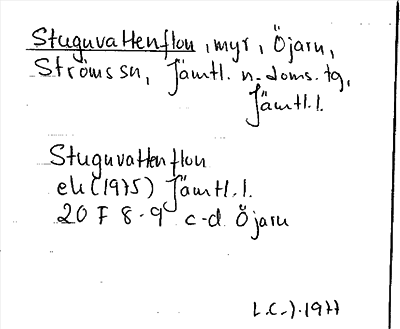 Stuguvattenflon, myr, Öjarn,
Ströms sn, Jämtl. n. doms. tg,
Jämtl. l.
Stuguvattenflon
ek (1975) Jämtl. l.
20 F 8-9 c-d Öjarn
1977